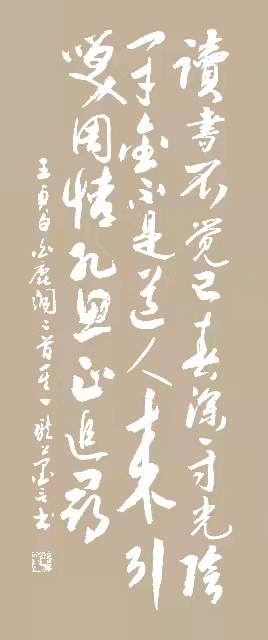 讀書不覺已春深一寸光陰
一寸金不是道人来引
笑周情孔思正追尋
王貞白白鹿洞二首其一 書